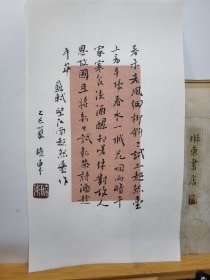 春未老風細柳斜〻試上超然臺
上看半壕春水一城花烟雨暗千
家寒食後酒醒卻咨嗟休對故人
思故國且將新火試新茶詩酒趁
年華 蘇軾望江南超然臺作
夏
書店